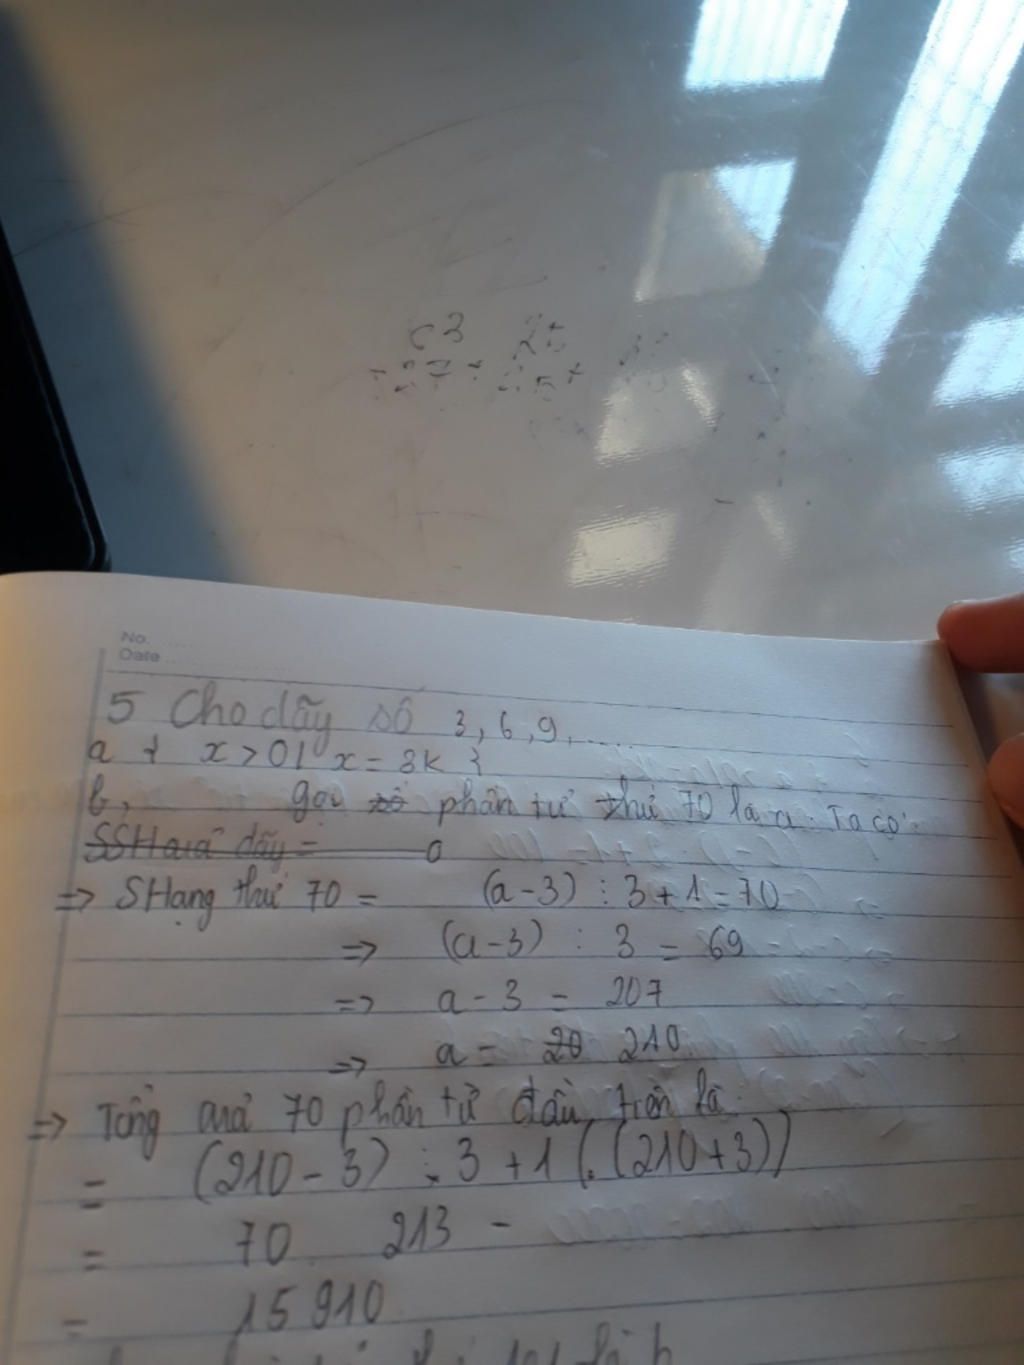 No.
Date
5 Cho dãy số 3, 6, 9, ...
a { x > 0 | x = 3k }
b, gọi phần tử thứ 70 là a. Ta có:
SSH của dãy =
=> SHạng thứ 70 = (a - 3) : 3 + 1 = 70
=> (a - 3) : 3 = 69
=> a - 3 = 207
=> a = 20 210
=> Tổng của 70 phần tử đầu tiên là:
= (210 - 3) : 3 + 1 (. (210 + 3))
= 70 . 213 -
= 15 910